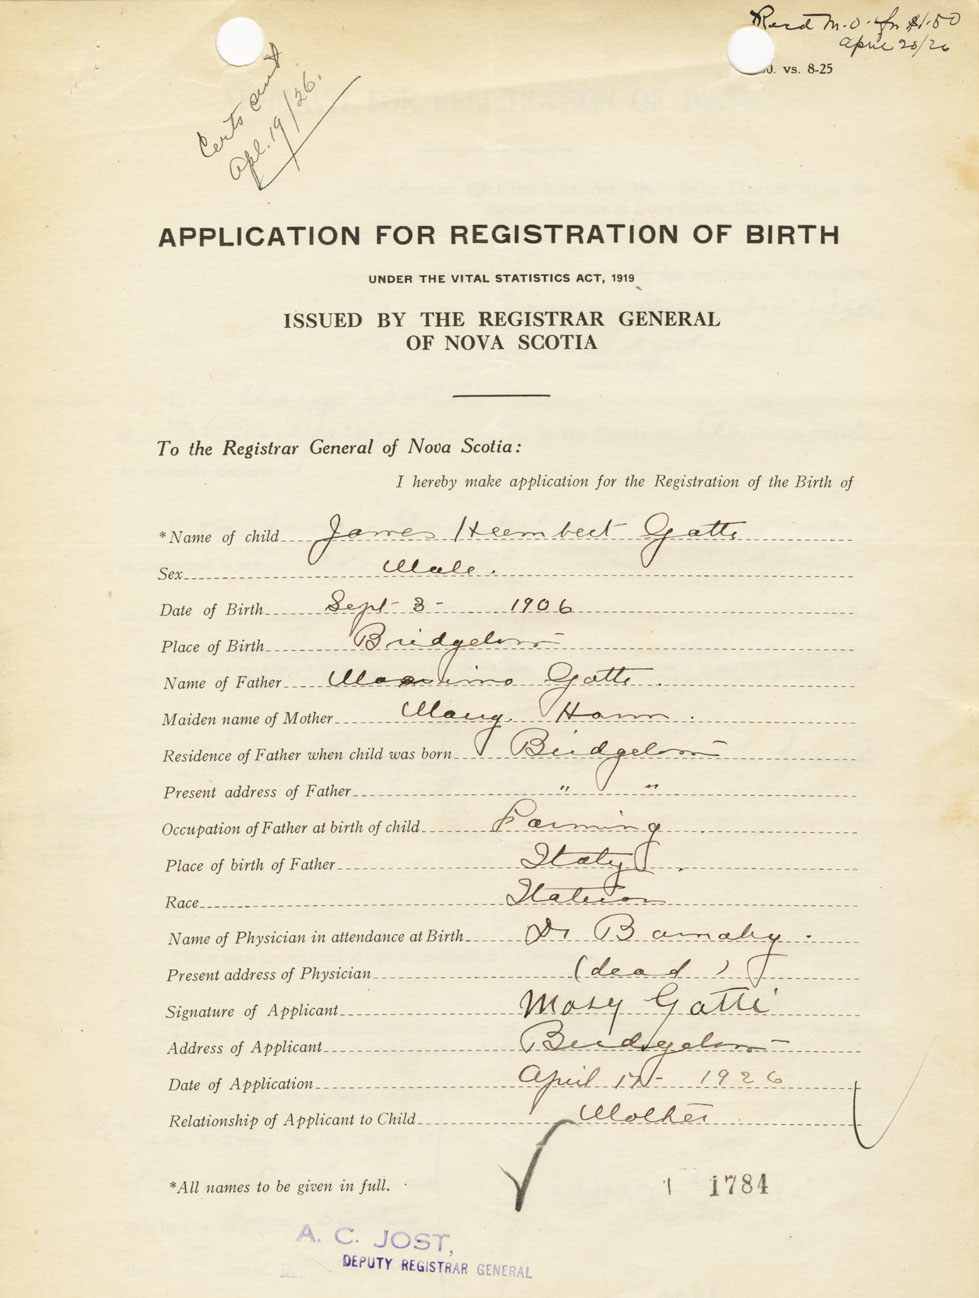 Recd M.O. for $1.50
April 20/26
0. vs. 8-25
Certs sent
Apl. 19/26.
APPLICATION FOR REGISTRATION OF BIRTH
UNDER THE VITAL STATISTICS ACT, 1919
ISSUED BY THE REGISTRAR GENERAL
OF NOVA SCOTIA
To the Registrar General of Nova Scotia:
I hereby make application for the Registration of the Birth of
*Name of child James Gatti
Sex Male.
Date of Birth Sept 3 - 1906
Place of Birth Bridgetown
Name of Father Massimo Gatti.
Maiden name of Mother Mary Hann.
Residence of Father when child was born Bridgetown
Present address of Father " "
Occupation of Father at birth of child Farming
Place of birth of Father Italy.
Race Italian
Name of Physician in attendance at Birth Dr Barnaby.
Present address of Physician (dead)
Signature of Applicant Mary Gatti
Address of Applicant Bridgetown
Date of Application April 17 - 1926
Relationship of Applicant to Child Mother
*All names to be given in full.
1784
A. C. JOST,
DEPUTY REGISTRAR GENERAL